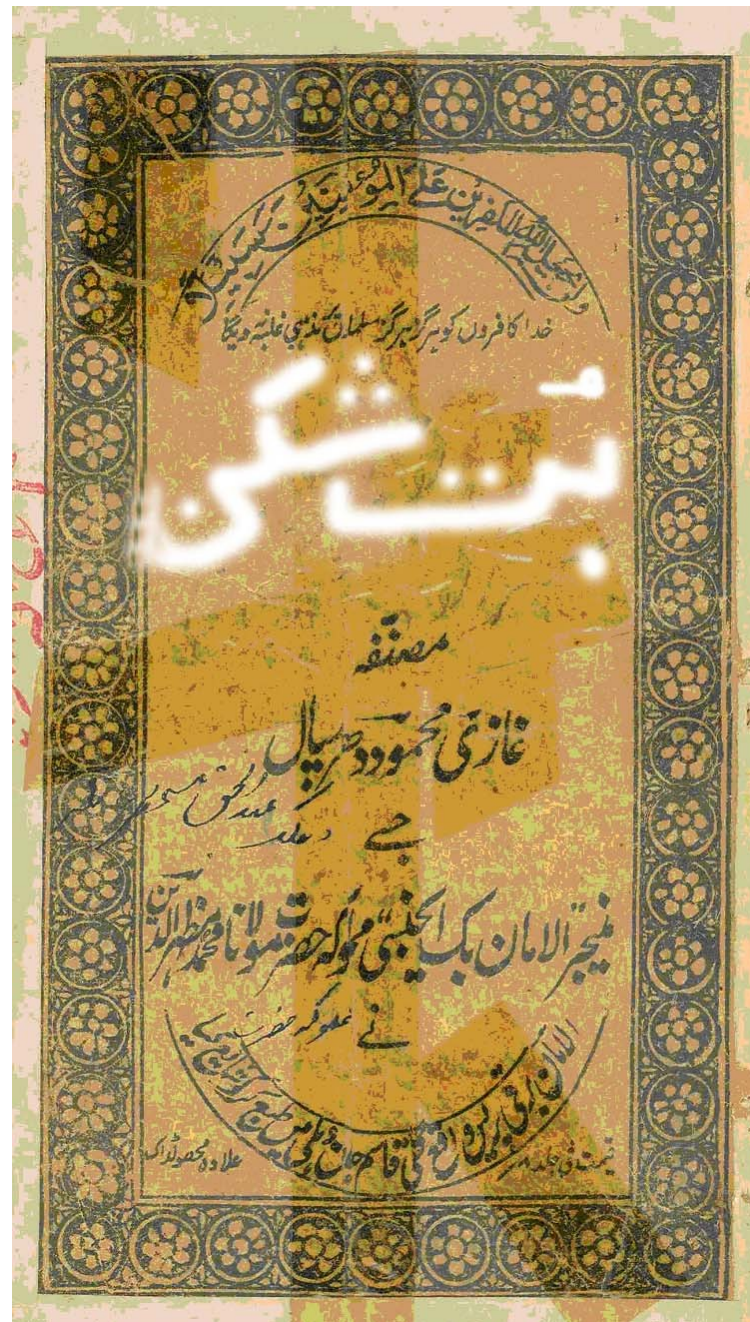 ولن یجعل اللہ للکفرین علی المؤمنین سبیلا
خدا کافروں کو ہرگز ہرگز مسلمانوں پر مذہبی غلبہ نہ دیگا
بُت شکن
مصنفہ
غازی محمود دھرمپال
جسے
منیجر الامان بک ایجنسی مملوکہ حضرت مولانا محمد مظہرالدین
نے مملوکہ حضرت
الامان برقی پریس واقع گلی قاسم جان دہلی میں طبع کرا کر شایع کیا
قیمت فی جلد
علاوہ محصولڈاک